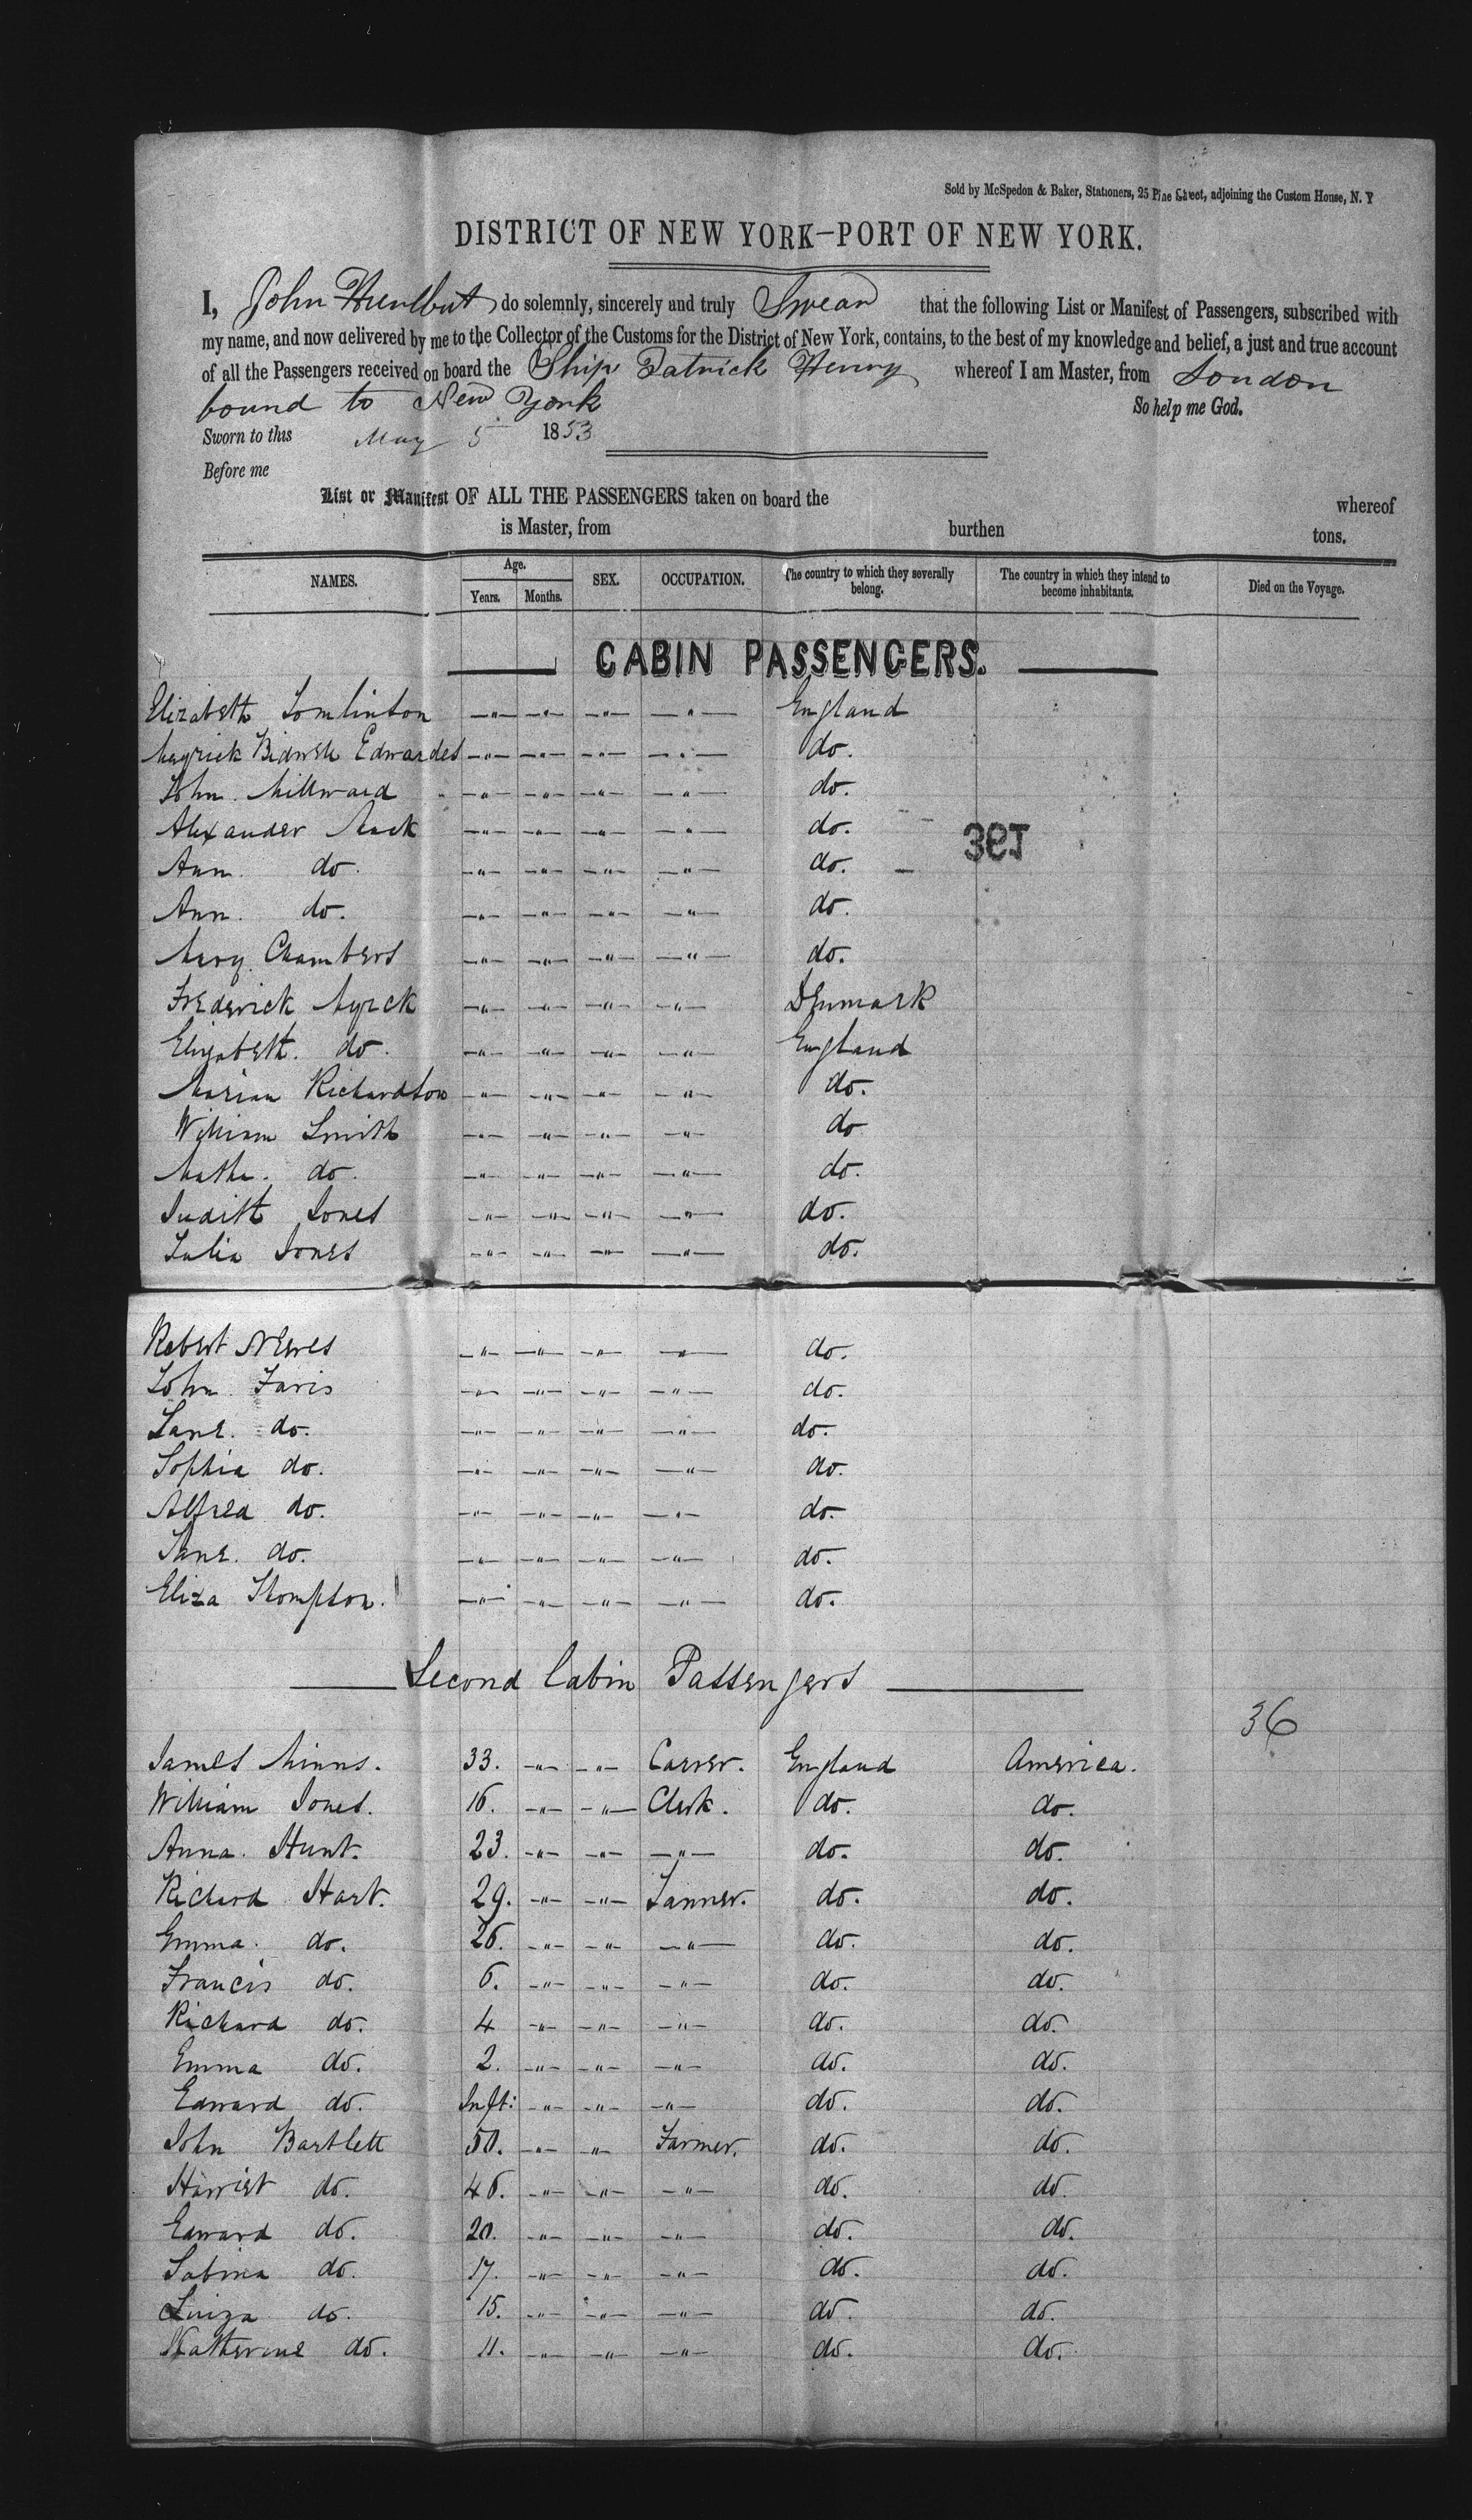 Sold by McSpedon & Baker, Stationers, 25 Pine Street, adjoining the Custom House, N. Y
DISTRICT OF NEW YORK—PORT OF NEW YORK.
I, John Hurlbut do solemnly, sincerely and truly Swear that the following List or Manifest of Passengers, subscribed with
my name, and now delivered by me to the Collector of the Customs for the District of New York, contains, to the best of my knowledge and belief, a just and true account
of all the Passengers received on board the Ship Patrick Henry whereof I am Master, from London
bound to New York So help me God.
Sworn to this May 5 1853
Before me
List or Manifest OF ALL THE PASSENGERS taken on board the whereof
is Master, from burthen tons.
NAMES. Age. Years. Months. SEX. OCCUPATION. The country to which they severally belong. The country in which they intend to become inhabitants. Died on the Voyage.
CABIN PASSENGERS.
Elizabeth Tomlinton —"— —"— —"— —"— England
Edwardes —"— —"— —"— —"— do.
John Millward —"— —"— —"— —"— do.
Alexander Mack —"— —"— —"— —"— do.
Ann do. —"— —"— —"— —"— do.
Ann. do. —"— —"— —"— —"— do.
Mary Chambers —"— —"— —"— —"— do.
Frederick —"— —"— —"— —"— Denmark
Elizabeth. do. —"— —"— —"— —"— England
Marian Richardson —"— —"— —"— —"— do.
William Smith —"— —"— —"— —"— do
do. —"— —"— —"— —"— do.
Judith Jones —"— —"— —"— —"— do.
Julia Jones —"— —"— —"— —"— do.
Robert —"— —"— —"— —"— do.
John Faris —"— —"— —"— —"— do.
Jane. do. —"— —"— —"— —"— do.
Sophia do. —"— —"— —"— —"— do.
Alfred do. —"— —"— —"— —"— do.
Jane. do. —"— —"— —"— —"— do.
Eliza Thompson. —"— —"— —"— —"— do.
Second Cabin Passengers
36
James Minns. 33. —"— —"— Carver. England America.
William Jones. 16. —"— —"— Clerk. do. do.
Anna. Hunt. 23. —"— —"— —"— do. do.
Richard Hart. 29. —"— —"— Tanner. do. do.
Emma. do. 26. —"— —"— —"— do. do.
Francis do. 6. —"— —"— —"— do. do.
Richard do. 4 —"— —"— —"— do. do.
Emma do. 2. —"— —"— —"— do. do.
Edward do. Inft: —"— —"— —"— do. do.
John Bartlett 50. —"— —"— Farmer. do. do.
Harriet do. 46. —"— —"— —"— do. do.
Edward do. 20. —"— —"— —"— do. do.
Sabina do. 17. —"— —"— —"— do. do.
Luiza do. 15. —"— —"— —"— do. do.
Katherine do. 11. —"— —"— —"— do. do.